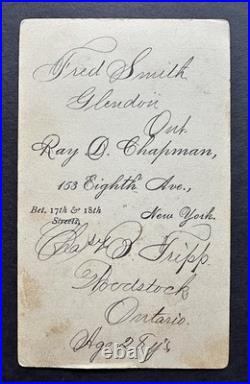 Fred Smith
Glendon
Ont
Ray D. Chapman,
153 Eighth Ave.,
Bet. 17th & 18th
Streets, New York.
Chas B Tripp
Woodstock
Ontario.
Age 28 y's